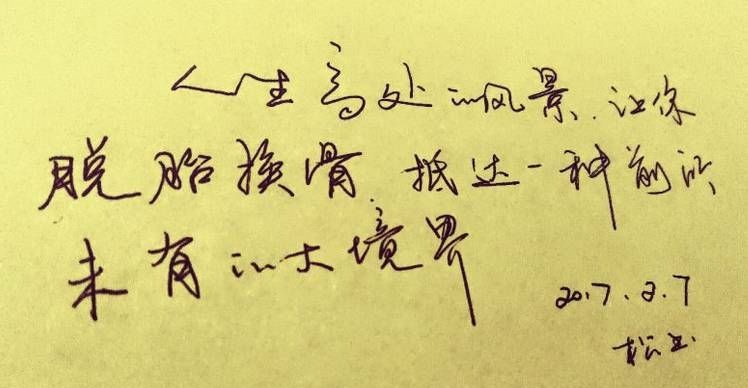 人生高处的风景,让你
脱胎换骨,抵达一种前所
未有的大境界
2017.2.7
松